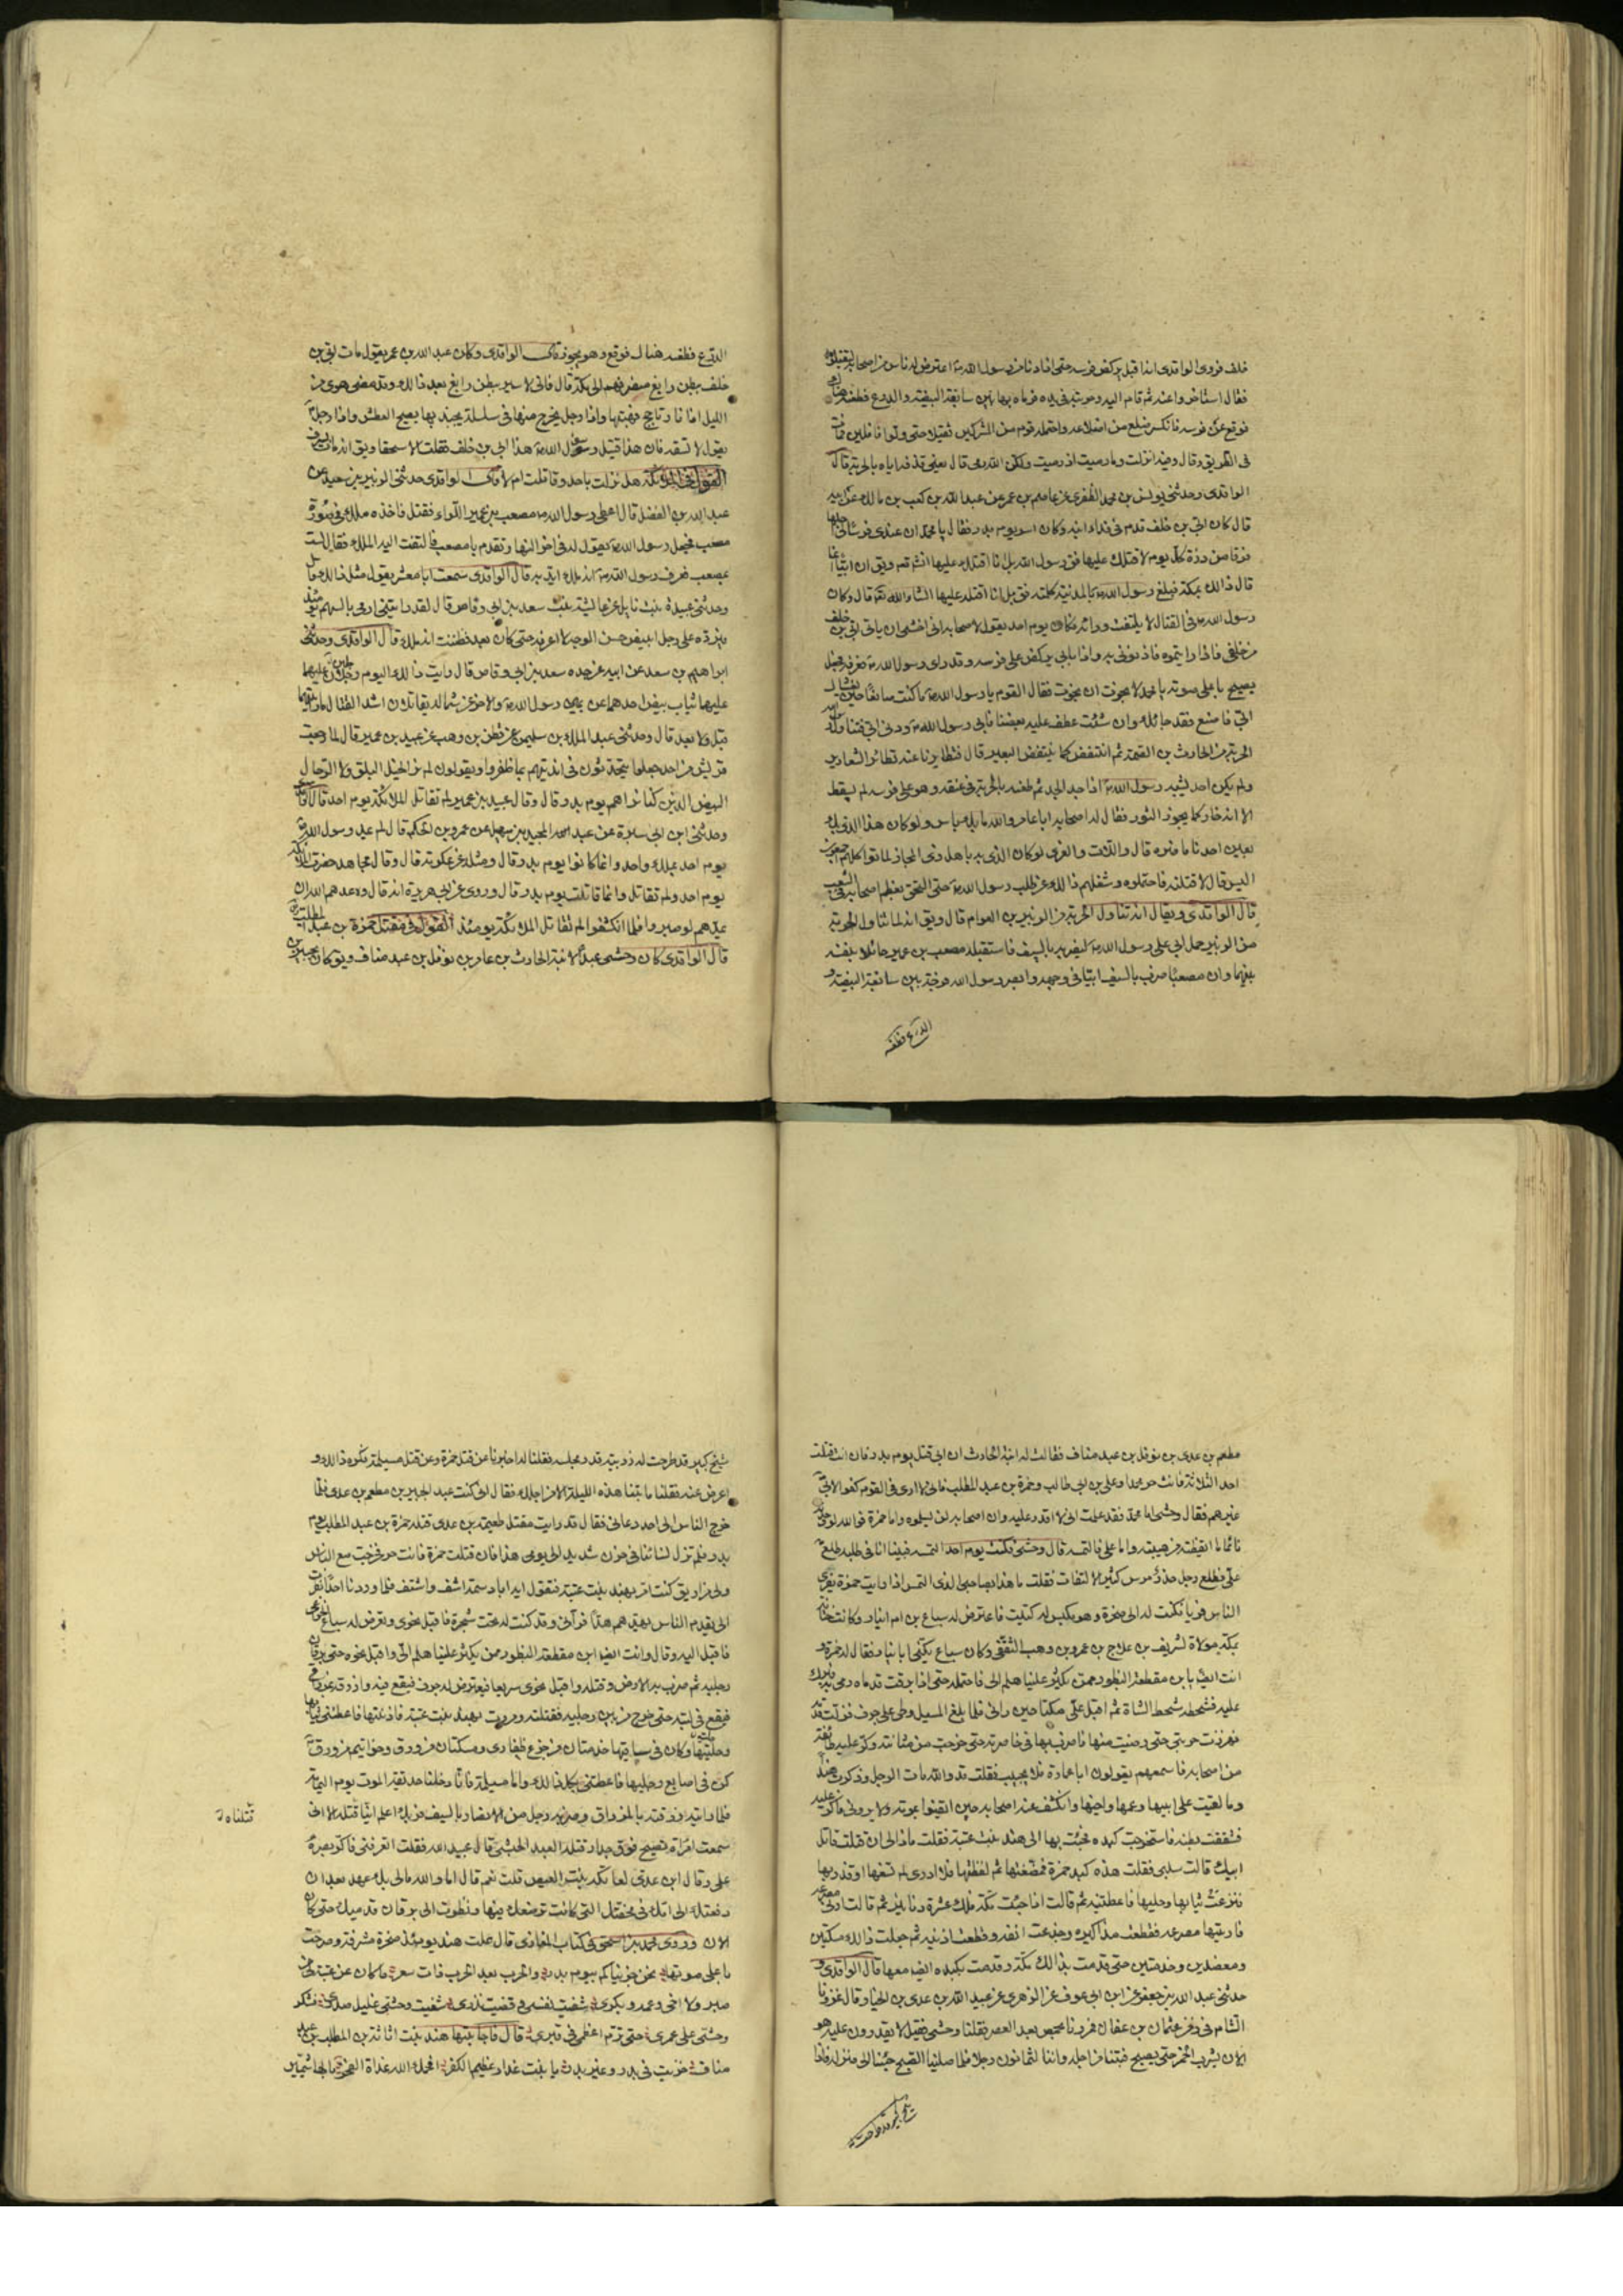 خلف فروى الواقدى انه اقبل يركض فرسه حتى اذا دنا من رسول الله ص اعترض له ناس من اصحابه ليقتلوه
فقال استاخروا عنه ثم قام اليه وحربته فى يده فرماه بها بين سابغة البيضة والدرع فطعنه هناك
فوقع عن فرسه فانكسر ضلع من اضلاعه واحتمله قوم من المشركين ثقيلا حتى ولوا قافلين فمات
فى الطريق وقال وفيه انزلت وما رميت اذ رميت ولكن الله رمى قال يعنى قذفه اياه بالحربة قال
الواقدى وحدثنى يونس بن محمد الظفرى عن عاصم بن عمر عن عبد الله بن كعب بن مالك عن ابيه
قال كان ابى بن خلف قدم فى فداء ابنه وكان اسر يوم بدر فقال يا محمد ان عندى فرسا لى اجلها
فرقا من ذرة كل يوم لاقتلك عليها فق رسول الله بل انا اقتلك عليها انش تعه ويق ان ابيا انما
قال ذالك بمكة فبلغ رسول الله ص بالمدينة كلمته فق بل انا اقتله عليها انشاء الله تع قال وكان
رسول الله ص فى القتال لا يلتفت وراءه فكان يوم احد يقول لاصحابه انى اخشى ان ياتى ابى بن خلف
من خلفى فاذا رايتموه فاذنونى به واذا بابى يركض على فرسه وقد راى رسول الله ص فعرفه فجعل
يصيح باعلى صوته يا محمد لا نجوت ان نجوت فقال القوم يا رسول الله ص ما كنت صانعا حين يغشاك
ابى فاصنع فقد جائك وان شئت عطف عليه بعضنا فابى رسول الله ص ودنى ابى فتناول
الحربة من الحارث بن الصمة ثم انتفض كما ينتفض البعير قال فتطايرنا عنه تطائر الشعارير
ولم يكن احد يشبه رسول الله ص اذا جد الجد ثم طعنه بالحربة فى عنقه وهو على فرسه لم يسقط
الا انه خار كما يخور الثور فقال له اصحابه ابا عامر والله ما بك باس ولو كان هذا الذى بك
بعين احدنا ما ضره قال واللات والعزى لو كان الذى بى باهل ذى المجاز لماتوا كلهم اجمعون
اليس قال لاقتلنه فاحتملوه وشغلهم ذالك عن طلب رسول الله ص حتى التحق بعظم اصحابه فى الشعب
قال الواقدى ويقال انه تناول الحربة من الزبير بن العوام قال ويق انه لما تناول الحربة
من الزبير حمل ابى على رسول الله ص ليضربه بالسيف فاستقبله مصعب بن عمير حائلا بنفسه
بينهما وان مصعبا ضرب بالسيف ابيا فى وجهه وابصر رسول الله فرجة بين سابغة البيضة و
الدرع فطعنه
الدرع فطعنه هناك فوقع وهو يخور قال الواقدى وكان عبد الله بن عمر يقول مات ابى بن
خلف ببطن رابغ منصرفهم الى مكة قال فانى لاسير ببطن رابغ بعد ذالك وقد مضى هوى من
الليل اذا نار تاجج فهبتها واذا رجل يخرج منها فى سلسلة يجتذبها يصيح العطش واذا رجل
يقول لا تسقه فان هذا قتيل رسول الله ص هذا ابى بن خلف فقلت الا سحقا ويق انه مات بسرف
القول فى الملائكة هل نزلت باحد وقاتلت ام لا قال الواقدى حدثنى الزبير بن سعيد عن
عبد الله بن الفضل قال اعطى رسول الله ص مصعب بن عمير اللواء فقتل فاخذه ملك فى صورة
مصعب فجعل رسول الله ص يقول له فى اخر النهار تقدم يا مصعب فالتفت اليه الملك فقال لست
بمصعب فعرف رسول الله ص انه ملك ايد به قال الواقدى سمعت ابا معشر يقول مثل ذالك قال
وحدثنى عبيدة بنت نايل عن عائشة بنت سعد بن ابى وقاص قال لقد رايتنى ارمى بالسهم يومئذ
فيرده على رجل ابيض حسن الوجه لا اعرفه حتى كان بعد فظننت انه ملك قال الواقدى وحدثنى
ابراهيم بن سعد عن ابيه عن جده سعد بن ابى وقاص قال رايت ذالك اليوم رجلين
عليهما ثياب بيض احدهما عن يمين رسول الله ص والاخر عن شماله يقاتلان اشد القتال ما رايتهما
قبل ولا بعد قال وحدثنى عبد الملك بن سليمن عن قطن بن وهب عن عبيد بن عمير قال لما رجعت
قريش من احد جعلوا يتحدثون فى انديتهم بما ظفروا ويقولون لم نر الخيل البلق ولا الرجال
البيض الذين كنا نراهم يوم بدر قال وقال عبيد بن عمير لم تقاتل الملائكة يوم احد قال الواقدى
وحدثنى ابن ابى سبرة عن عبد المجيد بن سهيل عن عمرو بن الحكم قال لم يمد رسول الله ص
يوم احد بملك واحد وانما كانوا يوم بدر قال ومثله عن عكرمة قال وقال مجاهد حضرت الملائكة
يوم احد ولم تقاتل وانما قاتلت يوم بدر قال وروى عن ابى هريرة انه قال وعدهم الله ان
يمدهم لو صبروا فلما انكشفوا لم تقاتل الملائكة يومئذ القول فى مقتل حمزة بن عبد المطلب
قال الواقدى كان وحشى عبدا لابنة الحارث بن عامر بن نوفل بن عبد مناف ويق كان لجبير بن
مطعم بن عدى بن نوفل بن عبد مناف فقالت له ابنة الحارث ان ابى قتل يوم بدر فان انت قتلت
احد الثلاثة فانت حر محمدا وعلى بن ابى طالب وحمزة بن عبد المطلب فانى لا ارى فى القوم كفوا لابى
غيرهم فقال وحشى اما محمد فقد علمت انى لا اقدر عليه وان اصحابه لن يسلموه واما حمزة فوالله لو وجدته
نائما ما ايقظته من هيبته واما على فالتمسه قال وحشى فكنت يوم احد التمسه فبينا انا فى طلبه طلع
على فطلع رجل حذر مرس كثير الالتفات فقلت ما هذا بصاحبى الذى التمس اذا رايت حمزة يفرى
الناس فريا فكمنت له الى صخرة وهو مكبس له كتيت فاعترض له سباع بن ام انمار وكانت امه ختانة
بمكة مولاة لشريف بن علاج بن عمرو بن وهب الثقفى وكان سباع يكنى ابا نيار فقال له حمزة و
انت ايضا يا بن مقطعة البظور ممن يكثر علينا هلم الى فاحتمله حتى اذا برقت قدماه رمى به فبرك
عليه فشحطه شحط الشاة ثم اقبل على مكبا حين رانى فلما بلغ المسيل وطى على جرف فزلت قدمه
فهززت حربتى حتى رضيت منها فاضرب بها فى خاصرته حتى خرجت من مثانته وكر عليه طائفة
من اصحابه فاسمعهم يقولون ابا عمارة فلا يجيب فقلت قد والله مات الرجل وذكرت هندا
وما لقيت على ابيها وعمها واخيها وانكشف عنه اصحابه حين ايقنوا بموته ولا يرونى فاكر عليه
فشققت بطنه فاستخرجت كبده فجئت بها الى هند بنت عتبة فقلت ماذا لى ان قتلت قاتل
ابيك قالت سلبى فقلت هذه كبد حمزة فمضغتها ثم لفظتها فلا ادرى لم تسغها او قذرتها
فنزعت ثيابها وحليها فاعطتنيه ثم قالت اذا جئت مكة فلك عشرة دنانير ثم قالت ارنى مصرعه
فاريتها مصرعه فقطعت مذاكيره وجدعت انفه وقطعت اذنيه ثم جعلت ذالك مسكتين
ومعضدين وخدمتين حتى قدمت بذالك مكة وقدمت بكبده ايضا معها قال الواقدى و
حدثنى عبد الله بن جعفر عن ابن ابى عوف عن الزهرى عن عبيد الله بن عدى بن الخيار قال غزونا
الشام فى زمن عثمان بن عفان فمررنا بحمص بعد العصر فقلنا وحشى فقيل لا تقدرون عليه هو
الان يشرب الخمر حتى يصبح فبتنا من اجله واننا لثمانون رجلا فلما صلينا الصبح جئنا الى منزله فاذا
شيخ كبير قد طرحت له
شيخ كبير قد طرحت له زربية قدر مجلسه فقلنا له اخبرنا عن قتل حمزة وعن قتل مسيلمة فكره ذالك و
اعرض عنه فقلنا ما بتنا هذه الليلة الا من اجلك فقال انى كنت عبدا لجبير بن مطعم بن عدى فلما
خرج الناس الى احد دعانى فقال قد رايت مقتل طعيمة بن عدى قتله حمزة بن عبد المطلب يوم
بدر فلم تزل نسائنا فى حزن شديد الى يومى هذا فان قتلت حمزة فانت حر فخرجت مع الناس
ولى مزاريق كنت امر بهند بنت عتبة فتقول ايه ابا دسمة اشف واشتف فلما وردنا احدا نظرت
الى يقدم الناس يهدهم هدا فرآنى وقد كمنت له تحت شجرة فاقبل نحوى وتعرض له سباع الخزاعى
فاقبل اليه وقال وانت ايضا ابن مقطعة البظور ممن يكثر علينا هلم الى واقبل نحوه حتى
رجليه ثم ضرب به الارض وقتله واقبل نحوى سريعا فيعترض له جرف فيقع فيه وازرقه بمزراقى
فيقع فى لبته حتى خرج من بين رجليه فقتلته ومررت بهند بنت عتبة فاذنتها فاعطتنى ثيابها
وحليها وكان فى ساقيها خدمتان من جزع ظفارى ومسكتان من ورق وخواتيم من ورق
كن فى اصابع رجليها فاعطتنى بكل ذالك واما مسيلمة فانا دخلنا حديقة الموت يوم اليمامة
فلما رايته زرقته بالمزراق وضربه رجل من الانصار بالسيف فربك اعلم اينا قتله الا انى
قتلناه
سمعت امراة تصيح فوق جدار قتله العبد الحبشى قال عبيد الله فقلت اتعرفنى فاكر بصره
على وقال ابن عدى لعاتكة بنت العيص قلت نعم قال اما والله مالى بك عهد بعد ان
دفعتك الى امك فى محفتك التى كانت ترضعك فيها ونظرت الى برقان قدميك حتى كان
الان وروى محمد بن اسحق فى كتاب المغازى قال علت هند يومئذ صخرة مشرفة وصرخت
باعلى صوتها نحن جزيناكم بيوم بدر والحرب بعد الحرب ذات سعر ما كان عن عتبة لى من
صبر ولا اخى وعمه وبكرى شفيت نفسى وقضيت نذرى شفيت وحشى غليل صدرى فشكر
وحشى على عمرى حتى ترم اعظمى فى قبرى قال فاجابتها هند بنت اثاثة بن المطلب بن عبد
مناف خزيت فى بدر وغير بدر يا بنت غدار عظيم الكفر افحمك الله غداة الفجر بالهاشميين